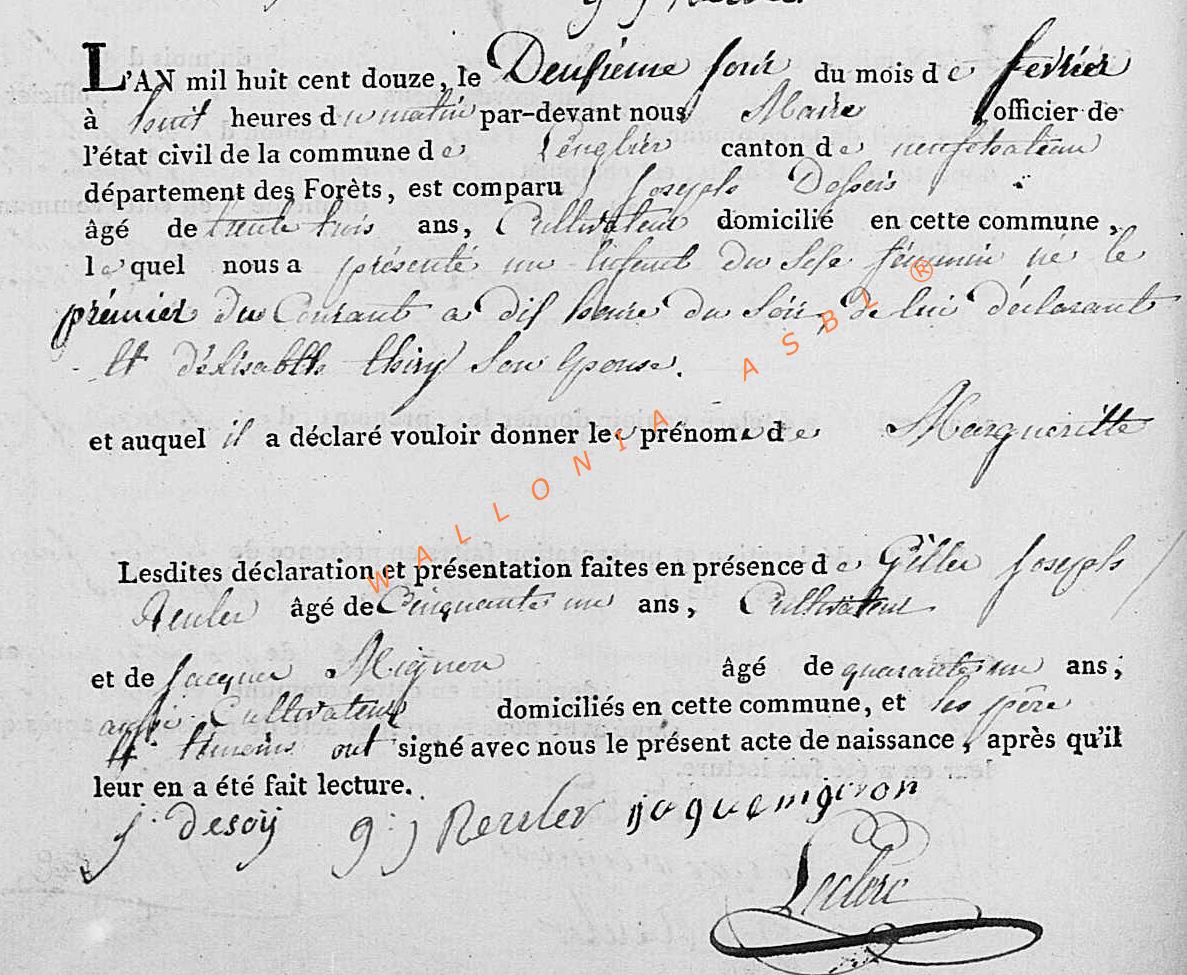 L'AN mil huit cent douze, le Deusieme jour du mois de fevrier
à huit heures du matin par-devant nous Maire officier de
l'état civil de la commune de Léuglier canton de neufchateau
département des Forêts, est comparu Joseph Dessois
âgé de trente trois ans, Cultivateur domicilié en cette commune,
lequel nous a présenté un Enfant du Sexe féminin né le
prémier du Courant a dis heure du Soir, de lui déclarant
Et d'élisabeth thiry Son Epouse.
et auquel il a déclaré vouloir donner le prénom de Margueritte
Lesdites déclaration et présentation faites en présence de Giller Joseph
Reuler âgé de Cinquante un ans, Cultivateur
et de Jacques Mignon âgé de quarante un ans;
aussi Cultivateur domiciliés en cette commune, et les pére
Et témoins ont signé avec nous le présent acte de naissance, après qu'il
leur en a été fait lecture.
j. desoij g. j Reuler jaquemignon
Leclerc
WALLONIA ASBL ®